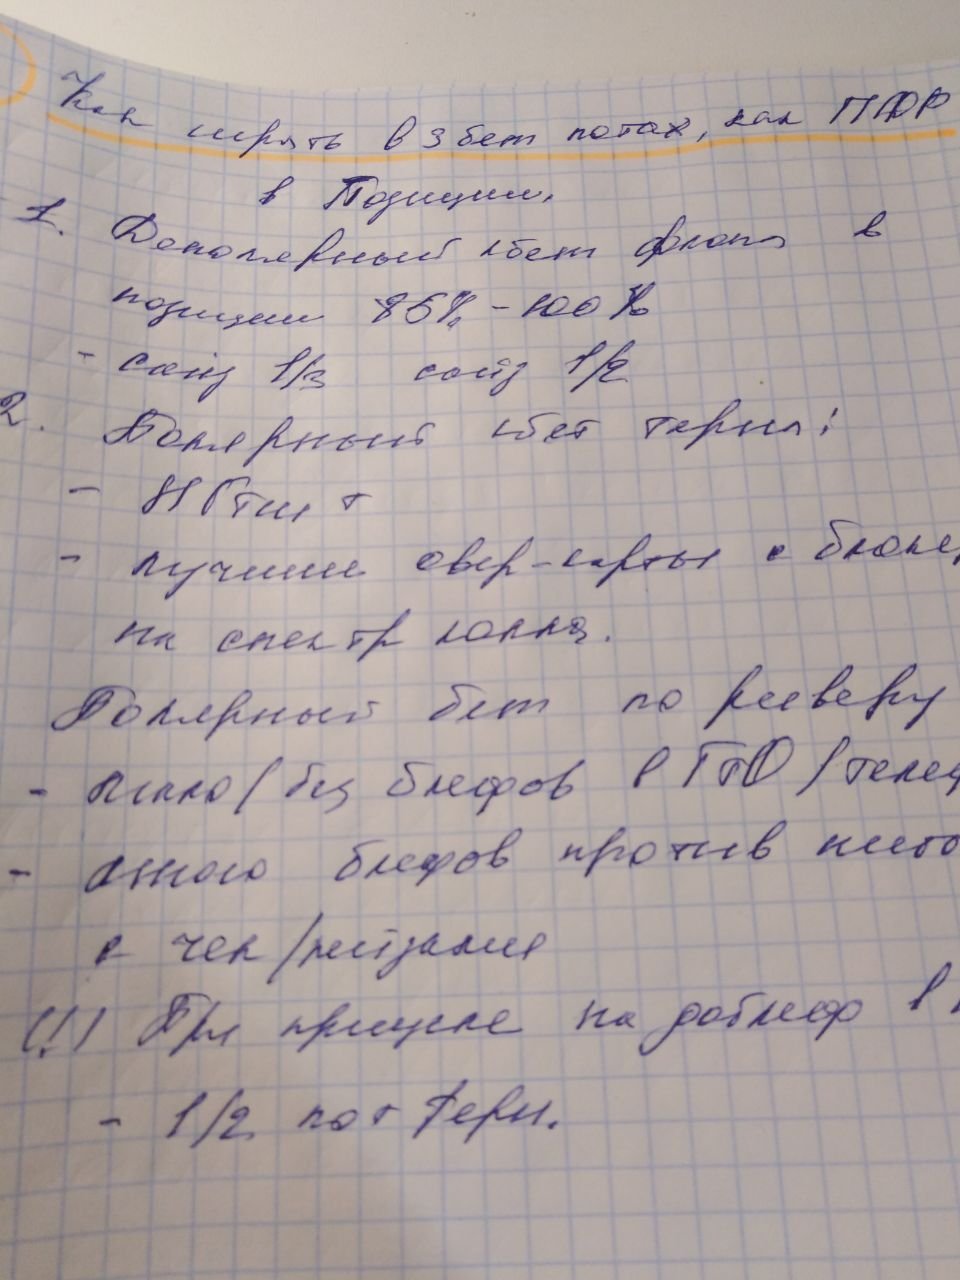 Как играть в 3 бет потах, как ПФР
в Позиции.
1. Деполярный кбет флопа в
позиции 86% - 100%
- сайз 1/3 сайз 1/2
2. Полярный кбет терна:
-
- лучшие овер-карты с блоке
на спектр колла.
Полярный бет по риверу
- мало/без блефов в ГТО/телеф
- много блефов против нито
с чек/рейзами
(!) При прицеле на доблеф в
- 1/2 пот терн.